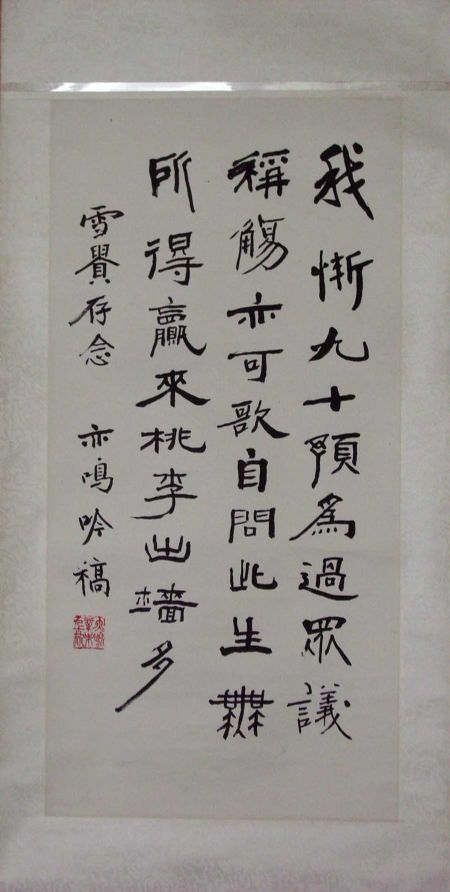 我惭九十預為過眾議
稱觴亦可歌自問此生無
所得贏來桃李出墻多
雪賢存念 亦鳴吟稿